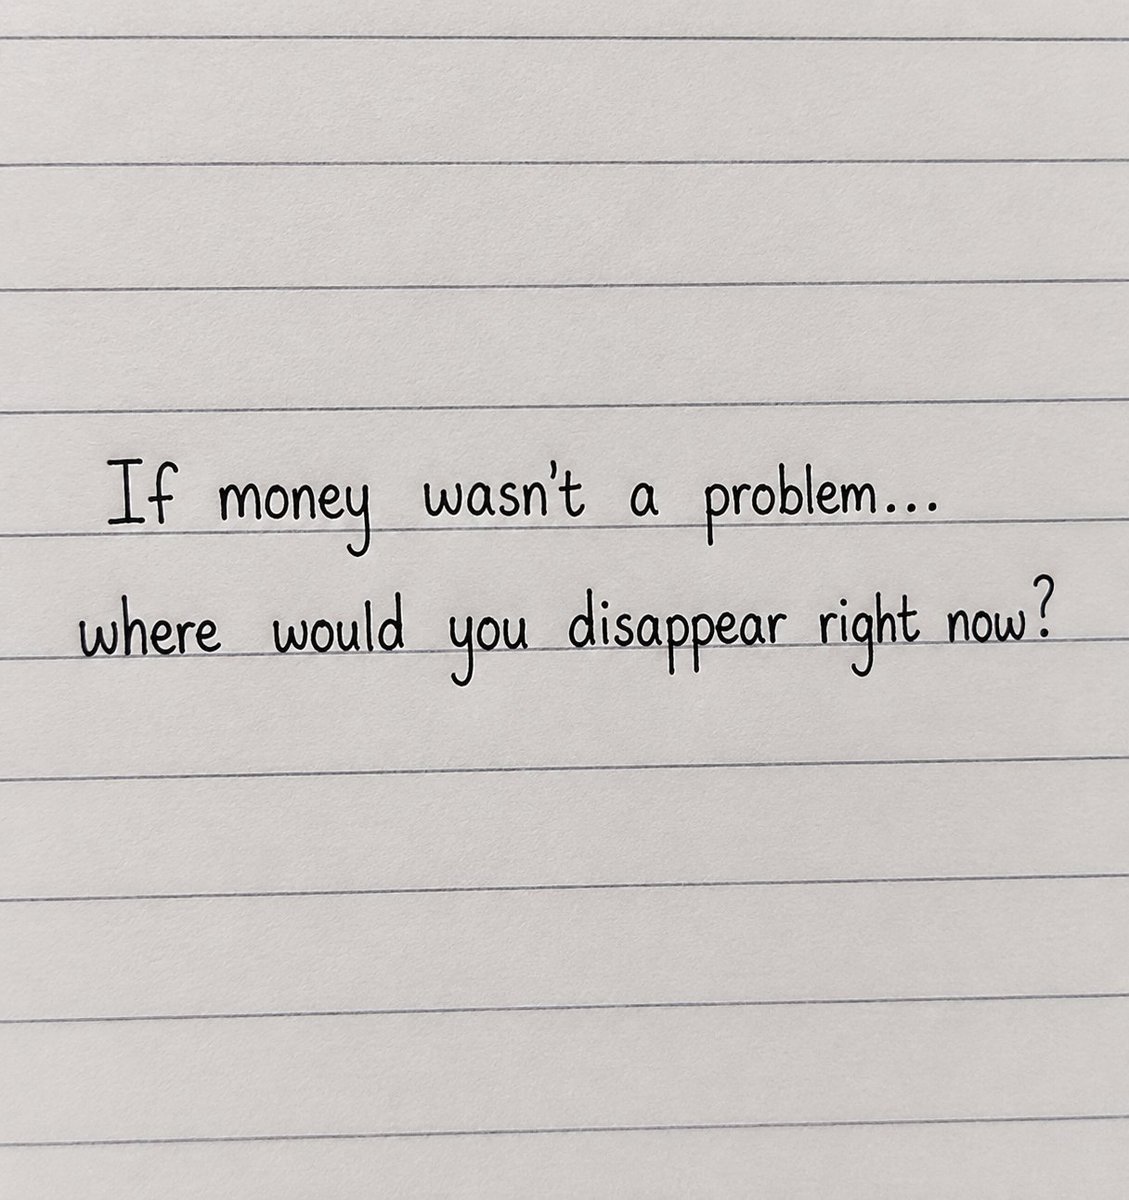 If money wasn't a problem...
where would you disappear right now?